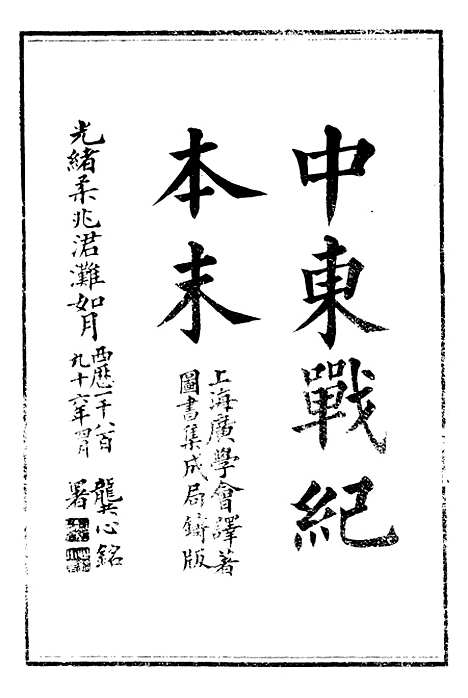 中東戰紀
本末
上海廣學會譯著
圖書集成局鑄版
光緒柔兆涒灘如月
西歷一千八百
九十六年四月
龔心銘
署